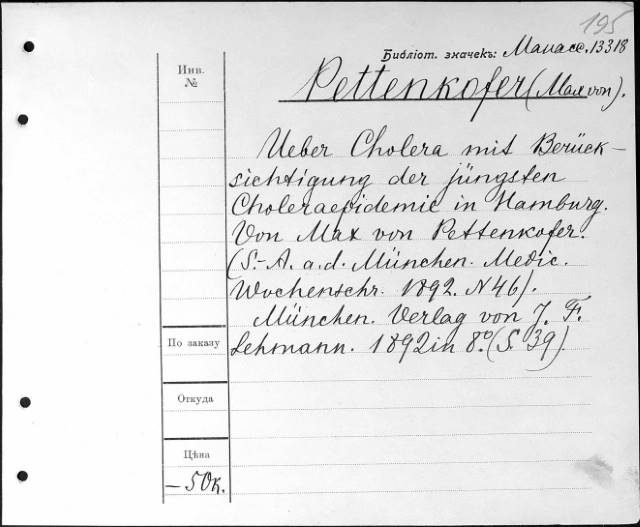 195
Библіот. значекъ: Манасс. 13318
Инв.
№
Pettenkofer (Max von).
Ueber Cholera mit Berück-
sichtigung der jüngsten
Choleraepidemie in Hamburg.
Von Max von Pettenkofer.
(S.-A. a. d. München. Medic.
Wochenschr. 1892. N 46).
München. Verlag von J. F.
Lehmann. 1892 in 8º. (S. 39).
По заказу
Откуда
Цѣна
– 50 к.